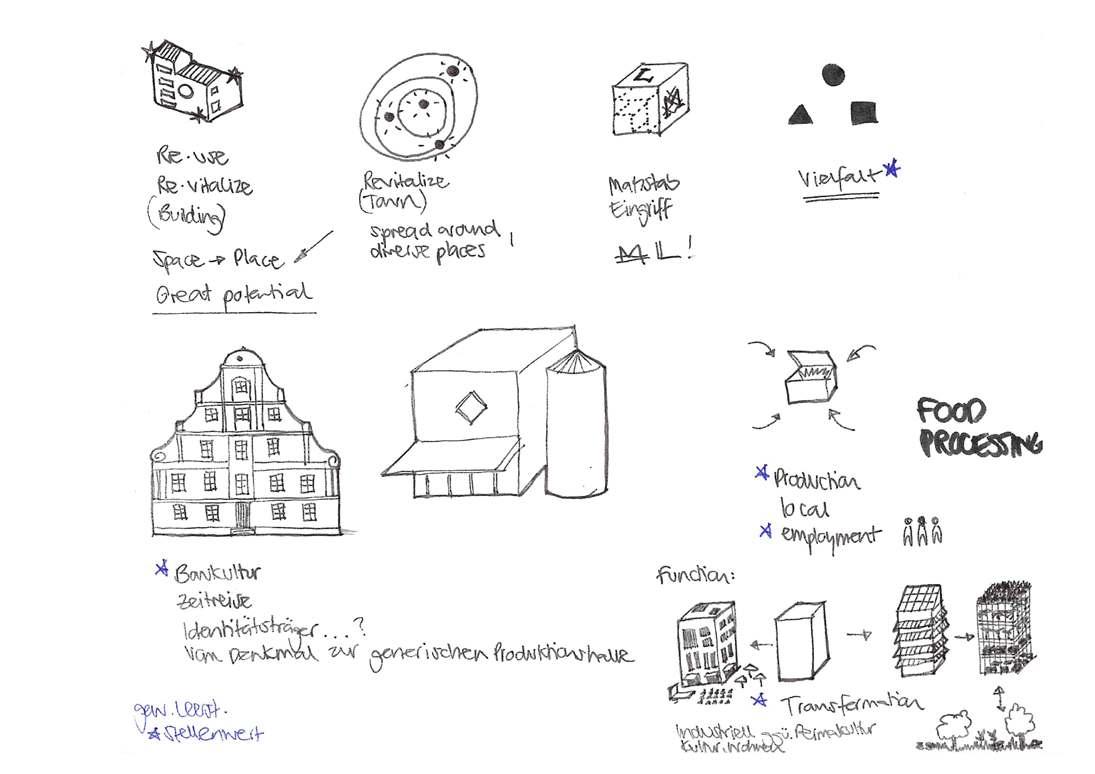 Re·use
Re·vitalize
(Building)
Space → Place
Great potential
Revitalize
(Town)
spread around,
diverse places
L
M
Matzstab
Eingriff
M L!
Vielfalt
FOOD
PROCESSING
Production
local
employment
Baukultur
Zeitreise
Identitätsträger...?
Vom Denkmal zur generischen Produktionshalle
Function:
Transformation
Industriell ggü. Permakultur
Kultur.
gew. Leerst.
Stellenwert